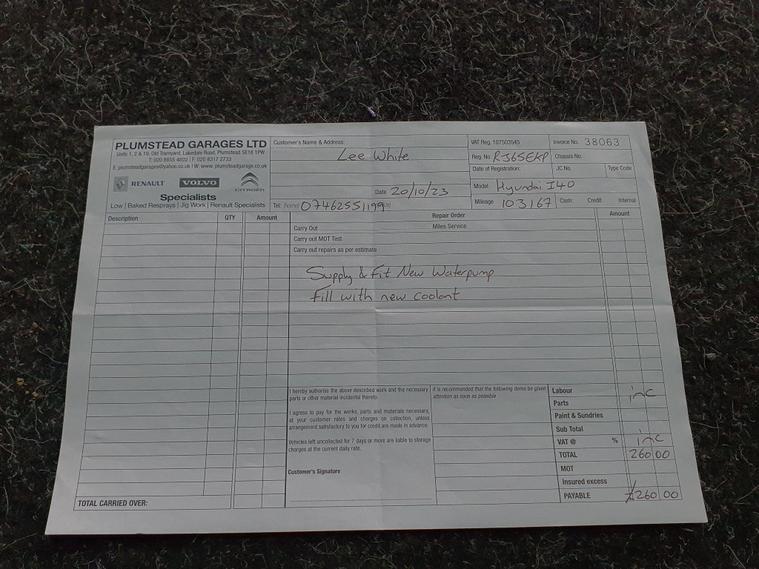 PLUMSTEAD GARAGES LTD
Units 1, 2 & 19, Old Tramyard, Lakedale Road, Plumstead SE18 1PW
T: 020 8855 4802 | F: 020 8317 2733
E: plumsteadgarages@yahoo.co.uk | W: www.plumsteadgarage.co.uk
RENAULT VOLVO CITROËN
Specialists
Low | Baked Resprays | Jig Work | Renault Specialists
Customer's Name & Address:
Lee White
Date 20/10/23
Tel: 07462551199
VAT Reg. Invoice No. 38063
Reg. No. RJ65EKP Chassis No.
Date of Registration: JC No. Type Code
Model Hyundai I40
Mileage 103167 Cash Credit Internal
Description QTY Amount Repair Order Amount
Carry Out Miles Service
Carry out MOT Test
Carry out repairs as per estimate
Supply & Fit New Waterpump
Fill with new coolant
I hereby authorise the above described work and the necessary
parts or other material incidental thereto.
I agree to pay for the works, parts and materials necessary,
at your customer rates and charges on collection, unless
arrangement satisfactory to you for credit are made in advance.
Vehicles left uncollected for 7 days or more are liable to storage
charges at the current daily rate.
Customer's Signature
It is recommended that the following items be given
attention as soon as possible
Labour inc
Parts
Paint & Sundries
Sub Total
VAT @ % inc
TOTAL 260 00
MOT
Insured excess
PAYABLE £260 00
TOTAL CARRIED OVER: